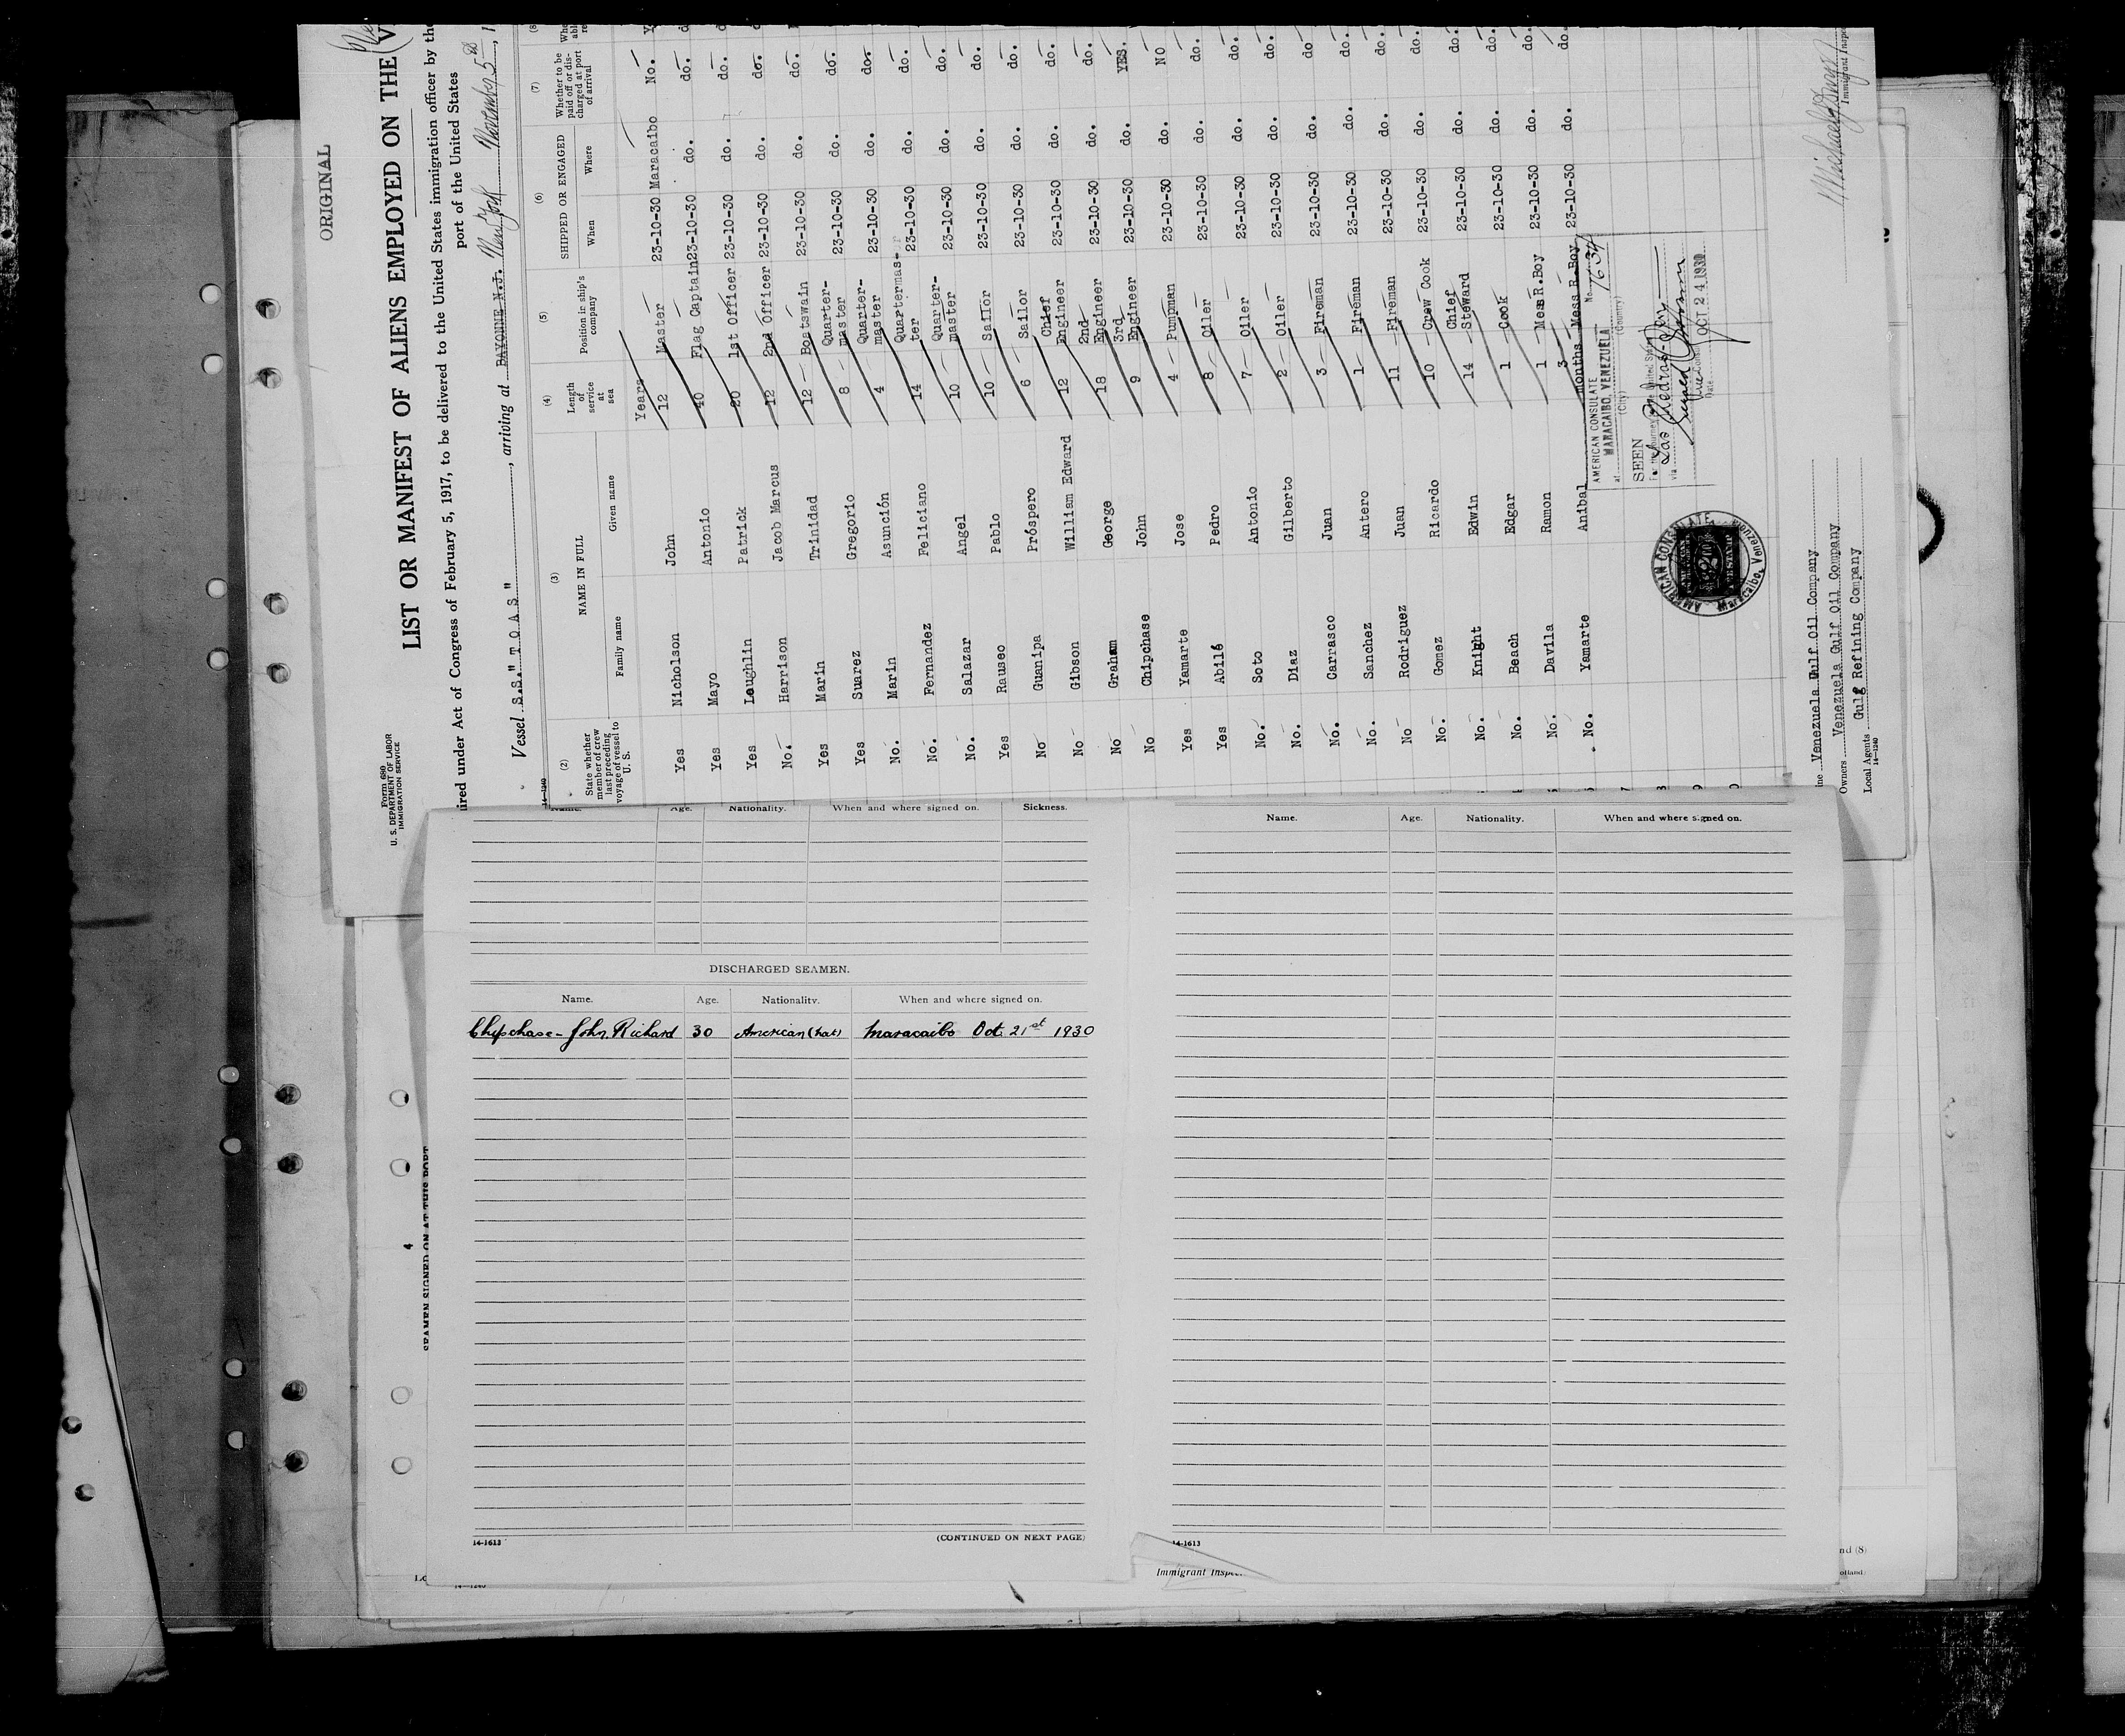 ORIGINAL
Form 680
U. S. DEPARTMENT OF LABOR
IMMIGRATION SERVICE
LIST OR MANIFEST OF ALIENS EMPLOYED ON THE
ired under Act of Congress of February 5, 1917, to be delivered to the United States immigration officer by the
port of the United States
Vessel S.S." T O A S ", arriving at BAYONNE N.J. New York November 5th, 1
14-1240
(2) (3) (4) (5) (6) (7) (8
State whether member of crew last preceding voyage of vessel to U. S. NAME IN FULL Length of service at sea Position in ship's company SHIPPED OR ENGAGED Whether to be paid off or discharged at port of arrival
Family name Given name When Where
Years
Yes Nicholson John 12 Master 23-10-30 Maracaibo No.
Yes Mayo Antonio 40 Flag Captain 23-10-30 do. do.
Yes Loughlin Patrick 20 1st Officer 23-10-30 do. do.
No. Harrison Jacob Marcus 12 2nd Officer 23-10-30 do. do.
Yes Marin Trinidad 12 Boatswain 23-10-30 do. do.
Yes Suarez Gregorio 8 Quarter-master 23-10-30 do. do.
No. Marin Asunción 4 Quarter-master 23-10-30 do. do.
No. Fernandez Feliciano 14 Quartermas-ter 23-10-30 do. do.
No. Salazar Angel 10 Quarter-master 23-10-30 do. do.
Yes Rauseo Pablo 10 Sailor 23-10-30 do. do.
No Guanipa Próspero 6 Sailor 23-10-30 do. do.
No Gibson William Edward 12 Chief Engineer 23-10-30 do. do.
No Graham George 18 2nd Engineer 23-10-30 do. do.
No Chipchase John 9 3rd Engineer 23-10-30 do. YES.
Yes Yamarte Jose 4 Pumpman 23-10-30 do. NO
Yes Abilé Pedro 8 Oiler 23-10-30 do. do.
No. Soto Antonio 7 Oiler 23-10-30 do. do.
No. Diaz Gilberto 2 Oiler 23-10-30 do. do.
No. Carrasco Juan 3 Fireman 23-10-30 do. do
No. Sanchez Antero 1 Fireman 23-10-30 do. do.
No Rodriguez Juan 11 Fireman 23-10-30 do. do.
No. Gomez Ricardo 10 Crew Cook 23-10-30 do. do.
No. Knight Edwin 14 Chief Steward 23-10-30 do. do.
No. Beach Edgar 1 Cook 23-10-30 do. do.
No. Davila Ramon 1 Mess R.Boy 23-10-30 do. do.
No. Yamarte Anibal 3 months Mess R.Boy 23-10-30 do. do.
AMERICAN CONSULATE No 7634
at MARACAIBO, VENEZUELA
(City) (Country)
SEEN
For the journey to the United States
via Las Piedras
Date OCT 24 1930
AMERICAN CONSULATE
Maracaibo, Venezuela
ne Venezuela Gulf Oil Company
Owners Venezuela Gulf Oil Company
Local Agents Gulf Refining Company
14-1240
Immigrant Inspe
Name. Age. Nationality. When and where signed on. Sickness.
DISCHARGED SEAMEN.
Name. Age. Nationality. When and where signed on.
Chipchase - John Richard 30 American (nat) Maracaibo Oct 21st 1930
(CONTINUED ON NEXT PAGE)
14-1613
Name. Age. Nationality. When and where signed on.
14-1613
Immigrant Inspe
4
SEAMEN SIGNED ON AT THIS PORT
nd (8)
olland)